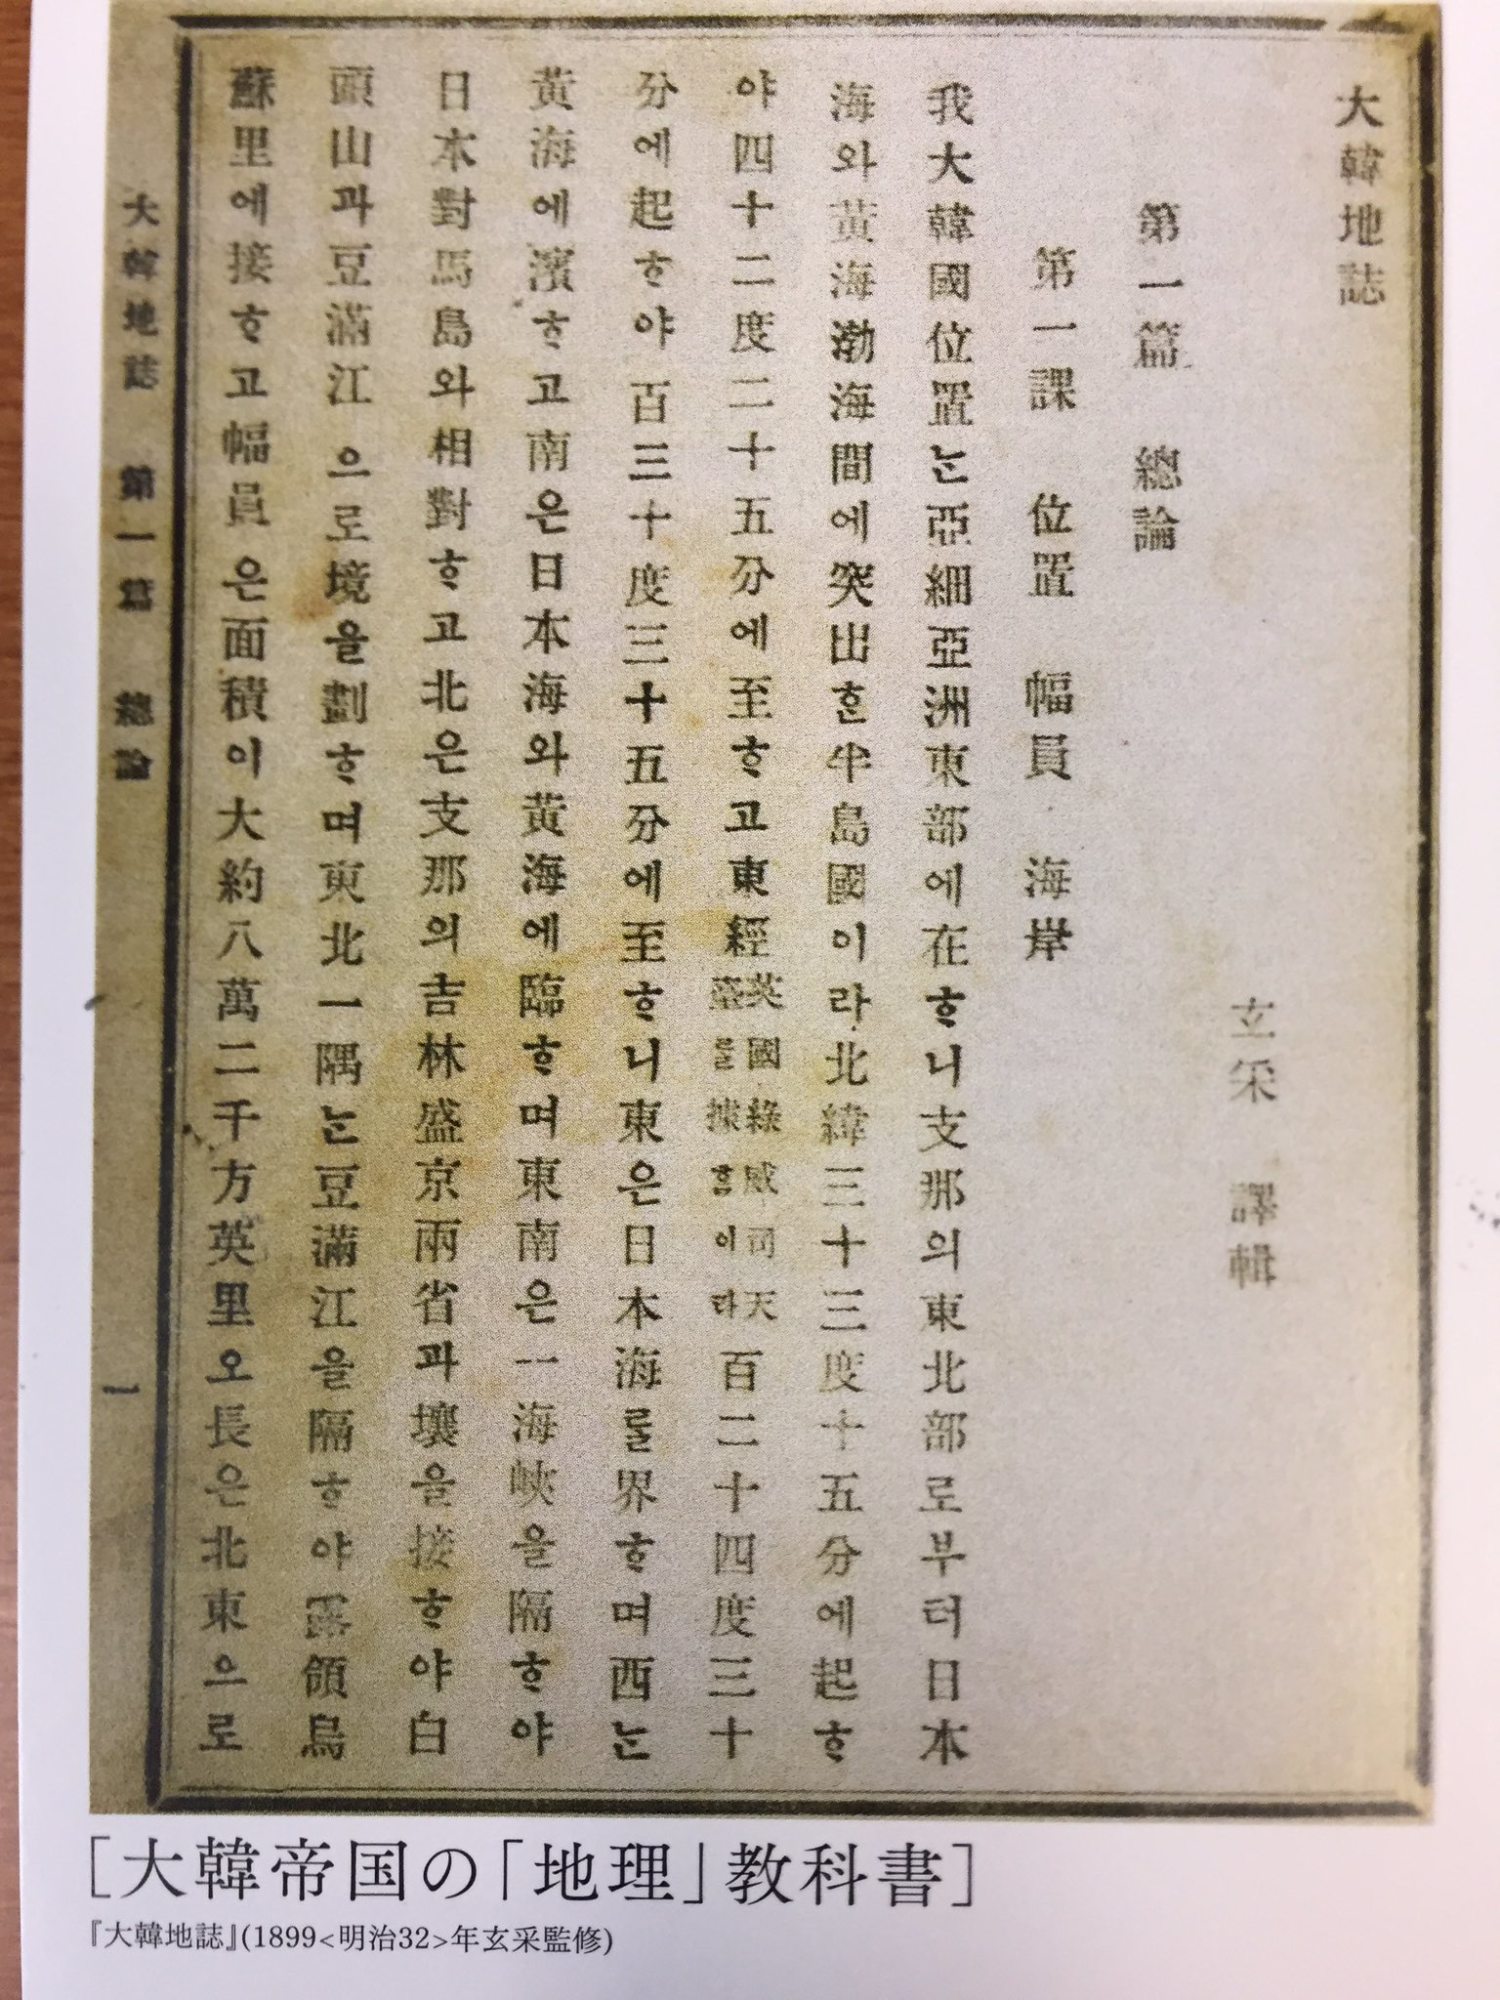 大韓地誌
玄采 譯輯
第一篇 總論
第一課 位置 幅員 海岸
我大韓國位置ᄂᆞᆫ亞細亞洲東部에在ᄒᆞ니支那의東北部로부터日本
海와黃海渤海間에突出ᄒᆞᆫ半島國이라北緯三十三度十五分에起ᄒᆞ
야四十二度二十五分에至ᄒᆞ고東經英國綠威司天臺를據홈이라百二十四度三十
分에起ᄒᆞ야百三十度三十五分에至ᄒᆞ니東은日本海를界ᄒᆞ며西ᄂᆞᆫ
黃海에濱ᄒᆞ고南은日本海와黃海에臨ᄒᆞ며東南은一海峽을隔ᄒᆞ야
日本對馬島와相對ᄒᆞ고北은支那의吉林盛京兩省과壤을接ᄒᆞ야白
頭山과豆滿江으로境을劃ᄒᆞ며東北一隅ᄂᆞᆫ豆滿江을隔ᄒᆞ야露領烏
蘇里에接ᄒᆞ고幅員은面積이大約八萬二千方英里오長은北東으로
大韓地誌 第一篇 總論 一
[大韓帝国の「地理」教科書]
『大韓地誌』(1899<明治32>年玄采監修)